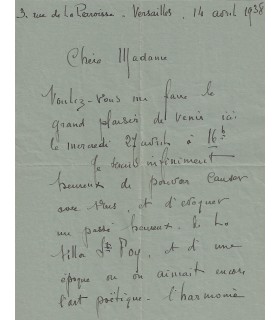 3. rue de la Paroisse. Versailles. 14 avril 1938
Chère Madame
Voulez-vous me faire le
grand plaisir de venir ici
le mercredi 27 avril à 16h
Je serais infiniment
heureux de pouvoir causer
avec vous, et d'évoquer
un passé heureux, de la
villa et d'une
époque où on aimait encore
l'art poétique. l'harmonie